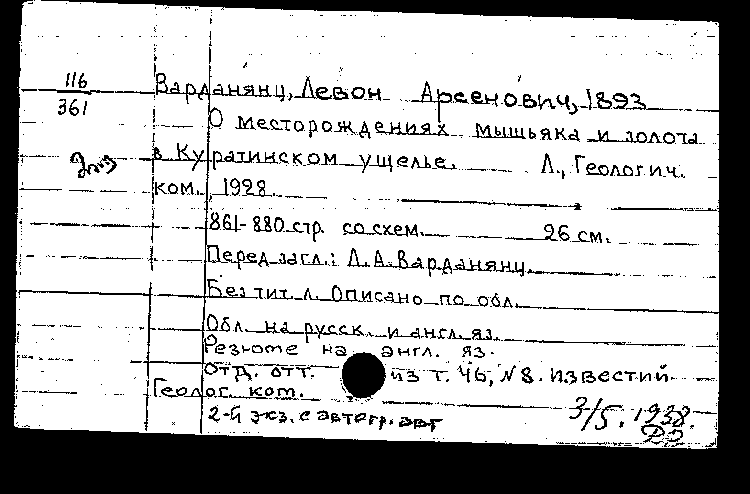 116
361
Варданянц, Левон Арсенович, 1893
О месторождениях мышьяка и золота
в Куратинском ущелье. Л., Геологич.
ком., 1928.
861-880 стр. со схем. 26 см.
Перед загл.: Л.А.Варданянц.
Без тит. л. Описано по обл.
Обл. на русск. и англ. яз.
Резюме на англ. яз.
Отд. отт. из т. 46, №8. Известий
Геолог. ком.
2-й экз. с автогр. авт
3/5. 1938.